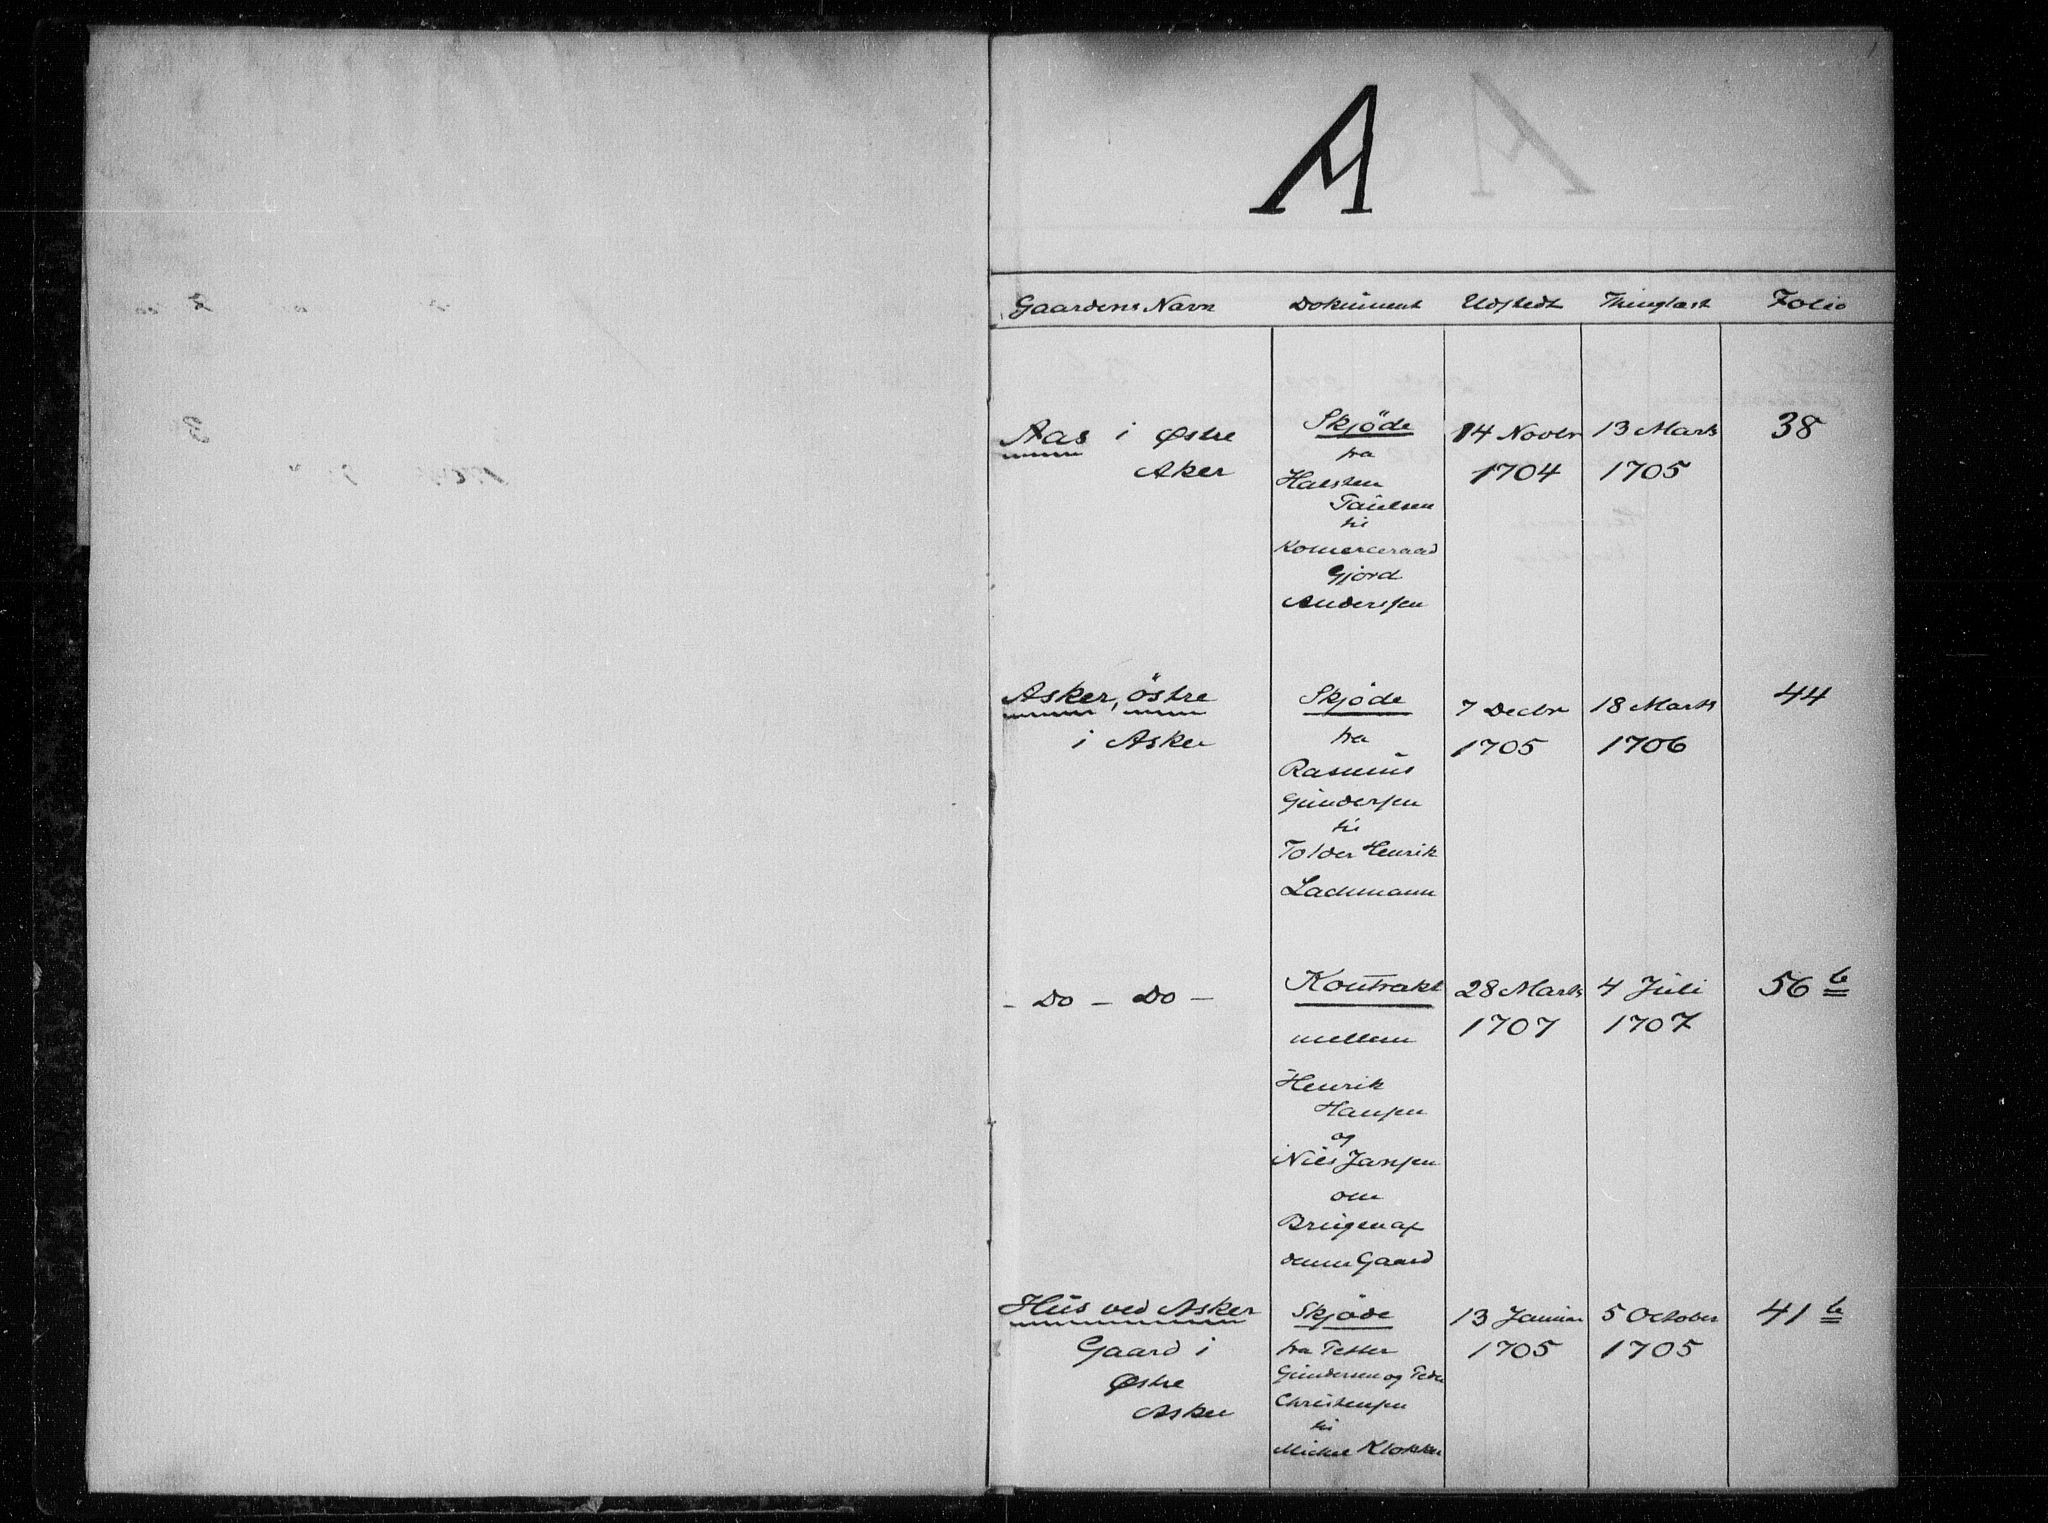 A
Gaardens Navn Dokument Udstedt Thinglæst Folio
Aas i Østre Skjøde 14 Novbr 13 Marts 38
Aker fra 1704 1705
Halsten
Paulsen
til
Komerceraad
Gjord
Anderssen
Asker, östre Skjøde 7 Decbr 18 Marts 44
i Asker fra 1705 1706
Rasmus
Gundersen
til
Tolder Henrik
Lachmann
- Do - Do - Kontrakt 28 Marts 4 Juli 56 b
mellem 1707 1707
Henrik
Hansen
og
Niels Jansen
om
Brugen af
denne Gaard
Hus ved Asker Skjøde 13 Januar 5 October 41 b
Gaard i fra Petter 1705 1705
Østre Gundersen og Peder
Asker Christensen
til
Michel Klokker